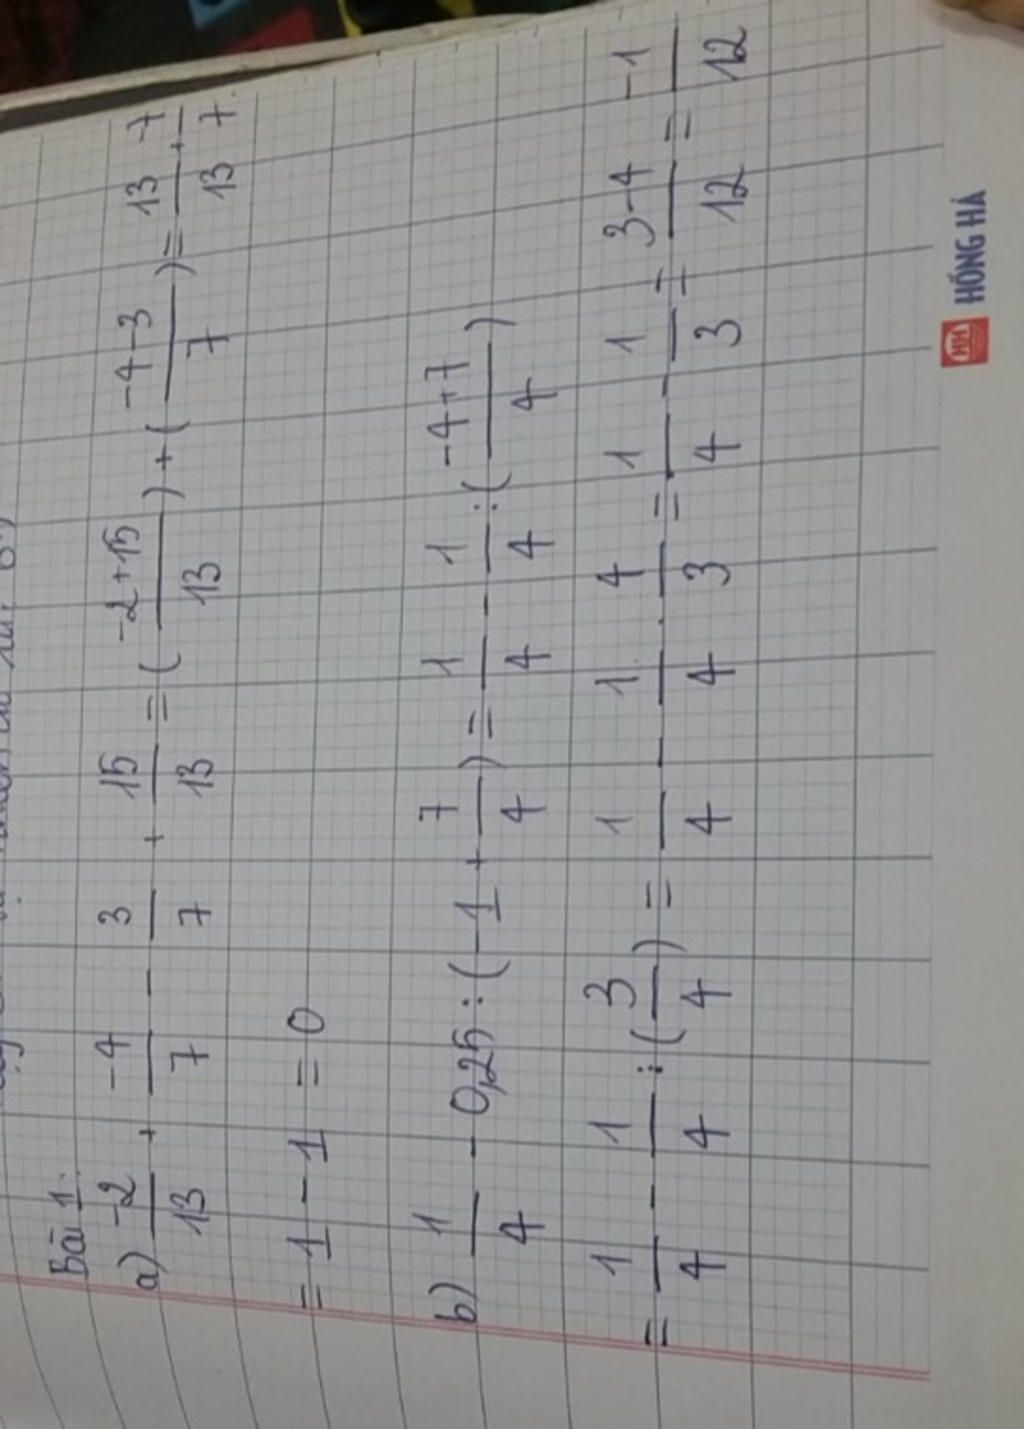 Bài 1.
a) -2/13 + -4/7 - 3/7 + 15/13 = (-2+15/13) + (-4-3/7) = 13/13 + -7/7
= 1 - 1 = 0
b) 1/4 - 0,25 : (-1 + 7/4) = 1/4 - 1/4 : (-4+7/4)
= 1/4 - 1/4 : (3/4) = 1/4 - 1/4 . 4/3 = 1/4 - 1/3 = 3-4/12 = -1/12
HỒNG HÀ